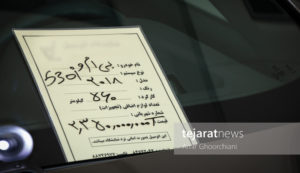 نام خودرو: بی ام و
نوع سیستم: 530i
مدل: ۲۰۱۸
رنگ:
کارکرد: ۵۶۰ کیلومتر
تعداد لوازم اضافی (تجهیزات):
شماره شهربانی:
قیمت: ۲,۳۵۰,۰۰۰,۰۰۰
tejaratnews
Amir Ghoorchiani